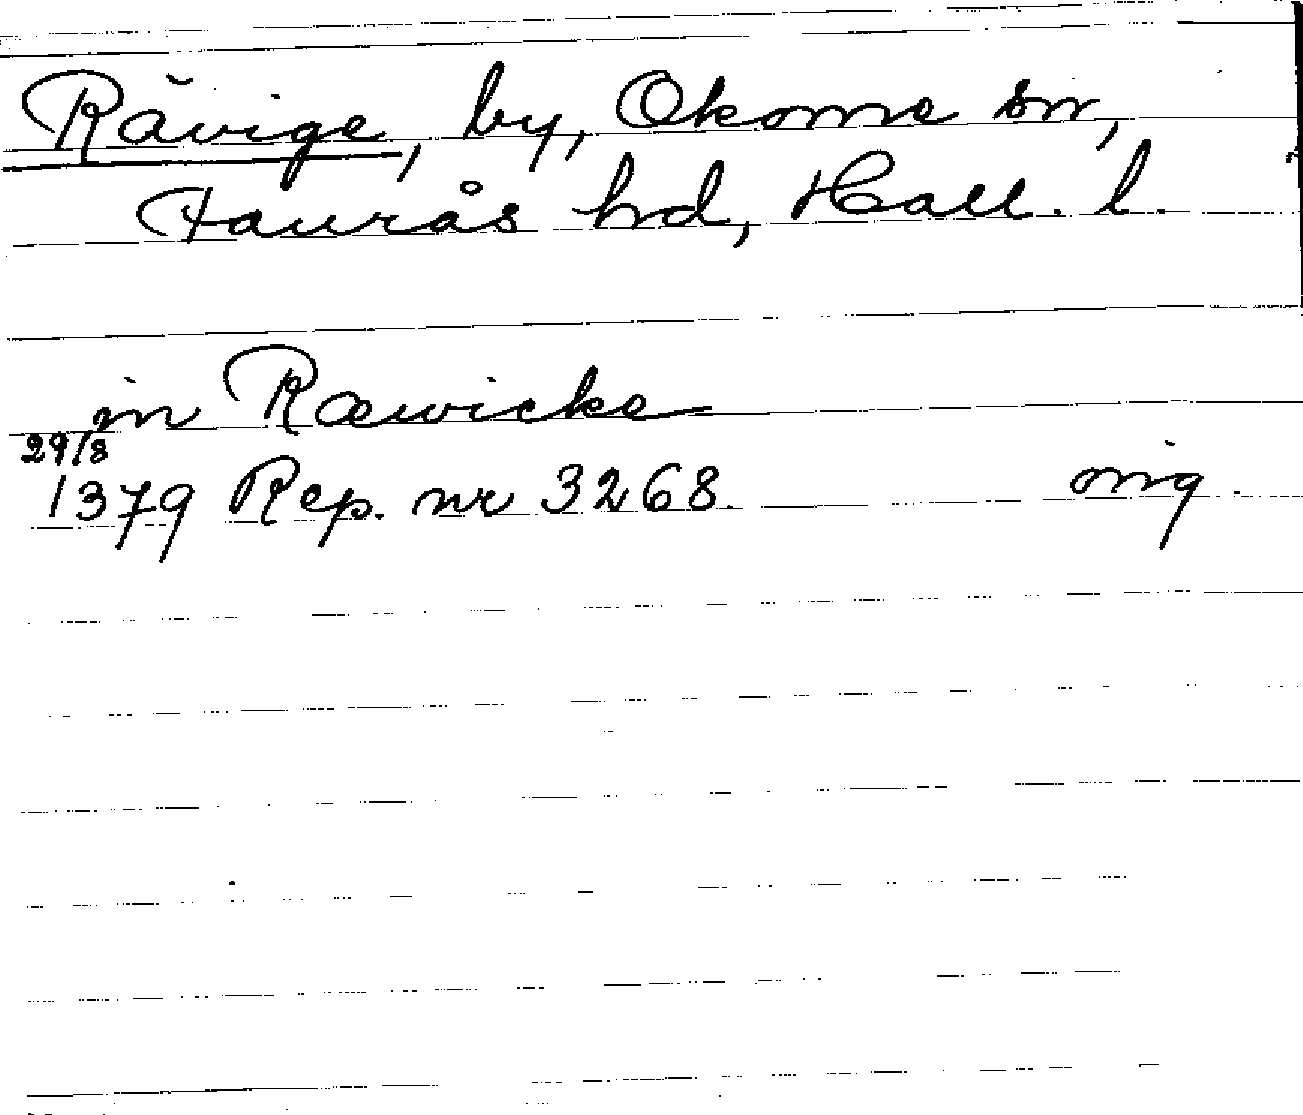 Rävige, by, Okome sn,
Faurås hd, Hall. l.
in Ræwicke
29/8
1379 Rep. nr 3268. orig.